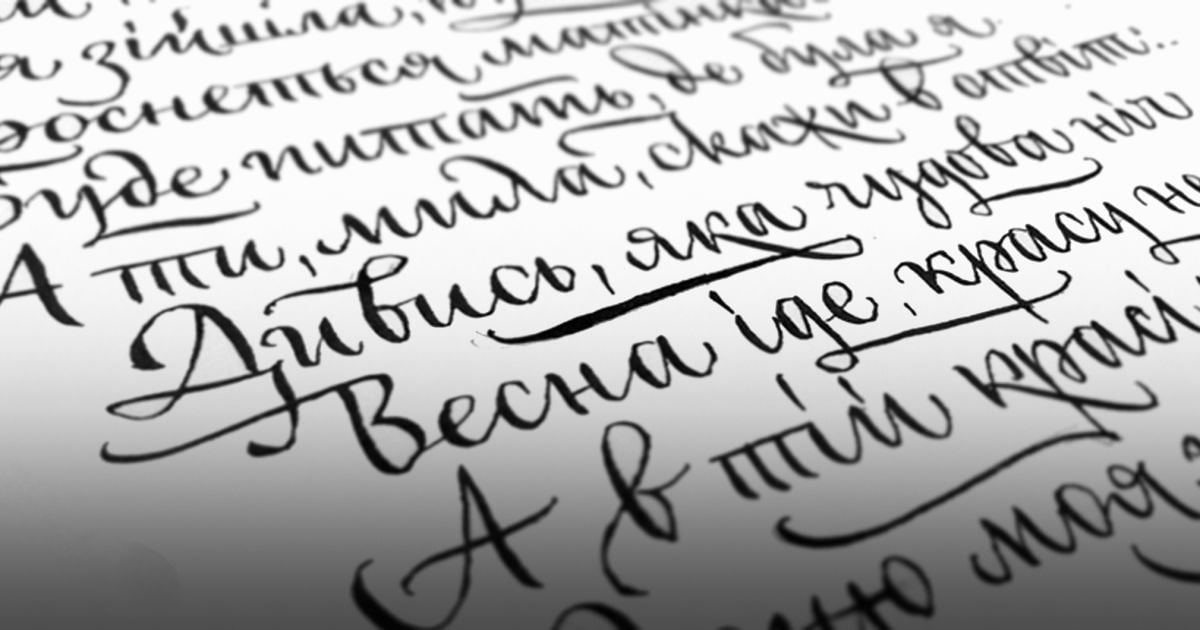 я зійшла,
проснеться матінка
буде питать, де була я
А ти, мила, скажи в отвіт:
Дивись, яка чудова ніч
Весна іде, красу не
А в тій красі
моя